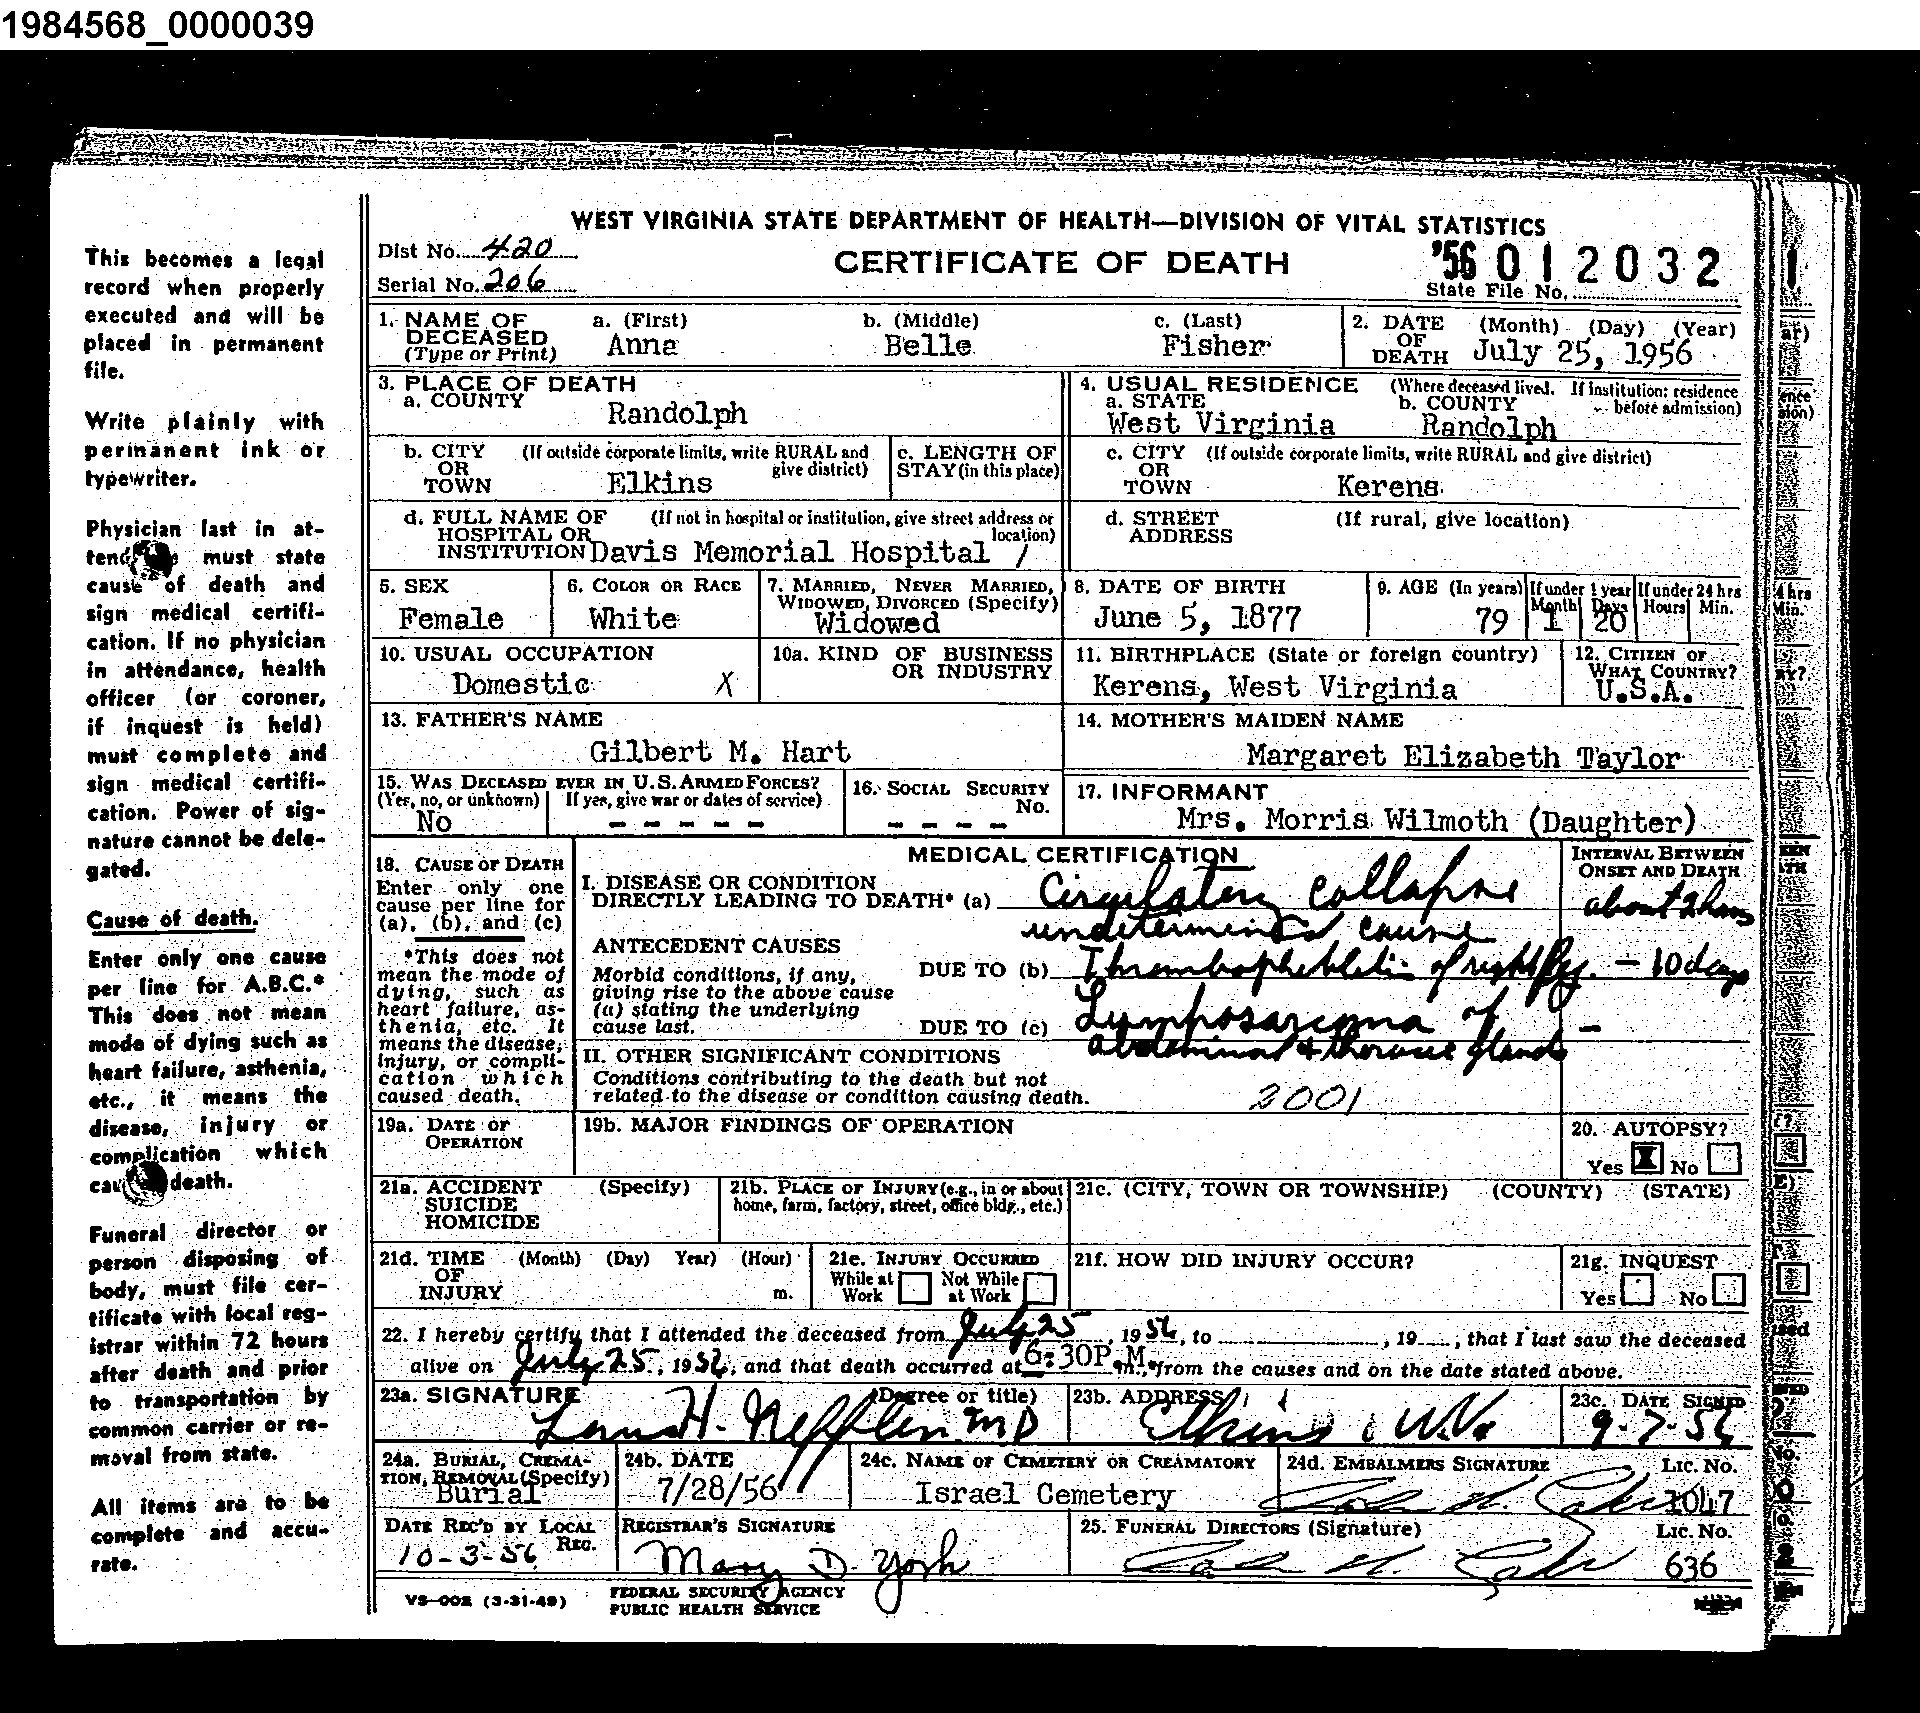 1984568_0000039
WEST VIRGINIA STATE DEPARTMENT OF HEALTH—DIVISION OF VITAL STATISTICS
Dist No. 420
Serial No. 206
CERTIFICATE OF DEATH
'56 012032
State File No.
This becomes a legal
record when properly
executed and will be
placed in permanent
file.
Write plainly with
permanent ink or
typewriter.
Physician last in at-
must state
cause of death and
sign medical certifi-
cation. If no physician
in attendance, health
officer (or coroner,
if inquest is held)
must complete and
sign medical certifi-
cation. Power of sig-
nature cannot be dele-
gated.
Cause of death.
Enter only one cause
per line for A.B.C.*
This does not mean
mode of dying such as
heart failure, asthenia,
etc., it means the
disease, injury or
complication which
death.
Funeral director or
person disposing of
body, must file cer-
tificate with local reg-
istrar within 72 hours
after death and prior
to transportation by
common carrier or re-
moval from state.
All items are to be
complete and accu-
rate.
1. NAME OF DECEASED (Type or Print) a. (First) b. (Middle) c. (Last)
Anna Belle Fisher
2. DATE OF DEATH (Month) (Day) (Year)
July 25, 1956
3. PLACE OF DEATH
a. COUNTY
Randolph
4. USUAL RESIDENCE (Where deceased lived. If institution: residence before admission)
a. STATE b. COUNTY
West Virginia Randolph
b. CITY OR TOWN (If outside corporate limits, write RURAL and give district)
Elkins
c. LENGTH OF STAY (in this place)
c. CITY OR TOWN (If outside corporate limits, write RURAL and give district)
Kerens
d. FULL NAME OF HOSPITAL OR INSTITUTION (If not in hospital or institution, give street address or location)
Davis Memorial Hospital 1
d. STREET ADDRESS (If rural, give location)
5. SEX
Female
6. COLOR OR RACE
White
7. MARRIED, NEVER MARRIED, WIDOWED, DIVORCED (Specify)
Widowed
8. DATE OF BIRTH
June 5, 1877
9. AGE (In years)
79
If under 1 year
Month Days
1 20
If under 24 hrs
Hours Min.
10. USUAL OCCUPATION
Domestic X
10a. KIND OF BUSINESS OR INDUSTRY
11. BIRTHPLACE (State or foreign country)
Kerens, West Virginia
12. CITIZEN OF WHAT COUNTRY?
U.S.A.
13. FATHER'S NAME
Gilbert M. Hart
14. MOTHER'S MAIDEN NAME
Margaret Elizabeth Taylor
15. WAS DECEASED EVER IN U.S. ARMED FORCES?
(Yes, no, or unknown) If yes, give war or dates of service)
No - - - - -
16. SOCIAL SECURITY No.
- - - -
17. INFORMANT
Mrs. Morris Wilmoth (Daughter)
18. CAUSE OF DEATH
Enter only one
cause per line for
(a), (b), and (c)
*This does not
mean the mode of
dying, such as
heart failure, as-
thenia, etc. It
means the disease,
injury, or compli-
cation which
caused death.
MEDICAL CERTIFICATION
I. DISEASE OR CONDITION
DIRECTLY LEADING TO DEATH* (a) Circulatory collapse
undetermined cause
ANTECEDENT CAUSES
Morbid conditions, if any,
giving rise to the above cause
(a) stating the underlying
cause last.
DUE TO (b) Thrombophlebitis of right leg. - 10 days
DUE TO (c) Lymphosarcoma of -
abdominal & thoracic glands
INTERVAL BETWEEN ONSET AND DEATH
about 2 hours
II. OTHER SIGNIFICANT CONDITIONS
Conditions contributing to the death but not
related to the disease or condition causing death.
2001
19a. DATE OF OPERATION
19b. MAJOR FINDINGS OF OPERATION
20. AUTOPSY?
Yes X No
21a. ACCIDENT SUICIDE HOMICIDE (Specify)
21b. PLACE OF INJURY (e.g., in or about home, farm, factory, street, office bldg., etc.)
21c. (CITY, TOWN OR TOWNSHIP) (COUNTY) (STATE)
21d. TIME OF INJURY (Month) (Day) Year) (Hour) m.
21e. INJURY OCCURRED
While at Work Not While at Work
21f. HOW DID INJURY OCCUR?
21g. INQUEST
Yes No
22. I hereby certify that I attended the deceased from July 25, 1956, to , 19 , that I last saw the deceased
alive on July 25, 1956, and that death occurred at 6:30P.M. m., from the causes and on the date stated above.
23a. SIGNATURE (Degree or title)
H. Nefflen MD
23b. ADDRESS
Elkins, W.Va
23c. DATE SIGNED
9-7-56
24a. BURIAL, CREMATION, REMOVAL (Specify)
Burial
24b. DATE
7/28/56
24c. NAME OF CEMETERY OR CREAMATORY
Israel Cemetery
24d. EMBALMERS SIGNATURE LIC. NO.
1047
DATE REC'D BY LOCAL REG.
10-3-56
REGISTRAR'S SIGNATURE
Mary D. York
25. FUNERAL DIRECTORS (Signature) LIC. NO.
636
VS-002 (3-31-49)
FEDERAL SECURITY AGENCY
PUBLIC HEALTH SERVICE